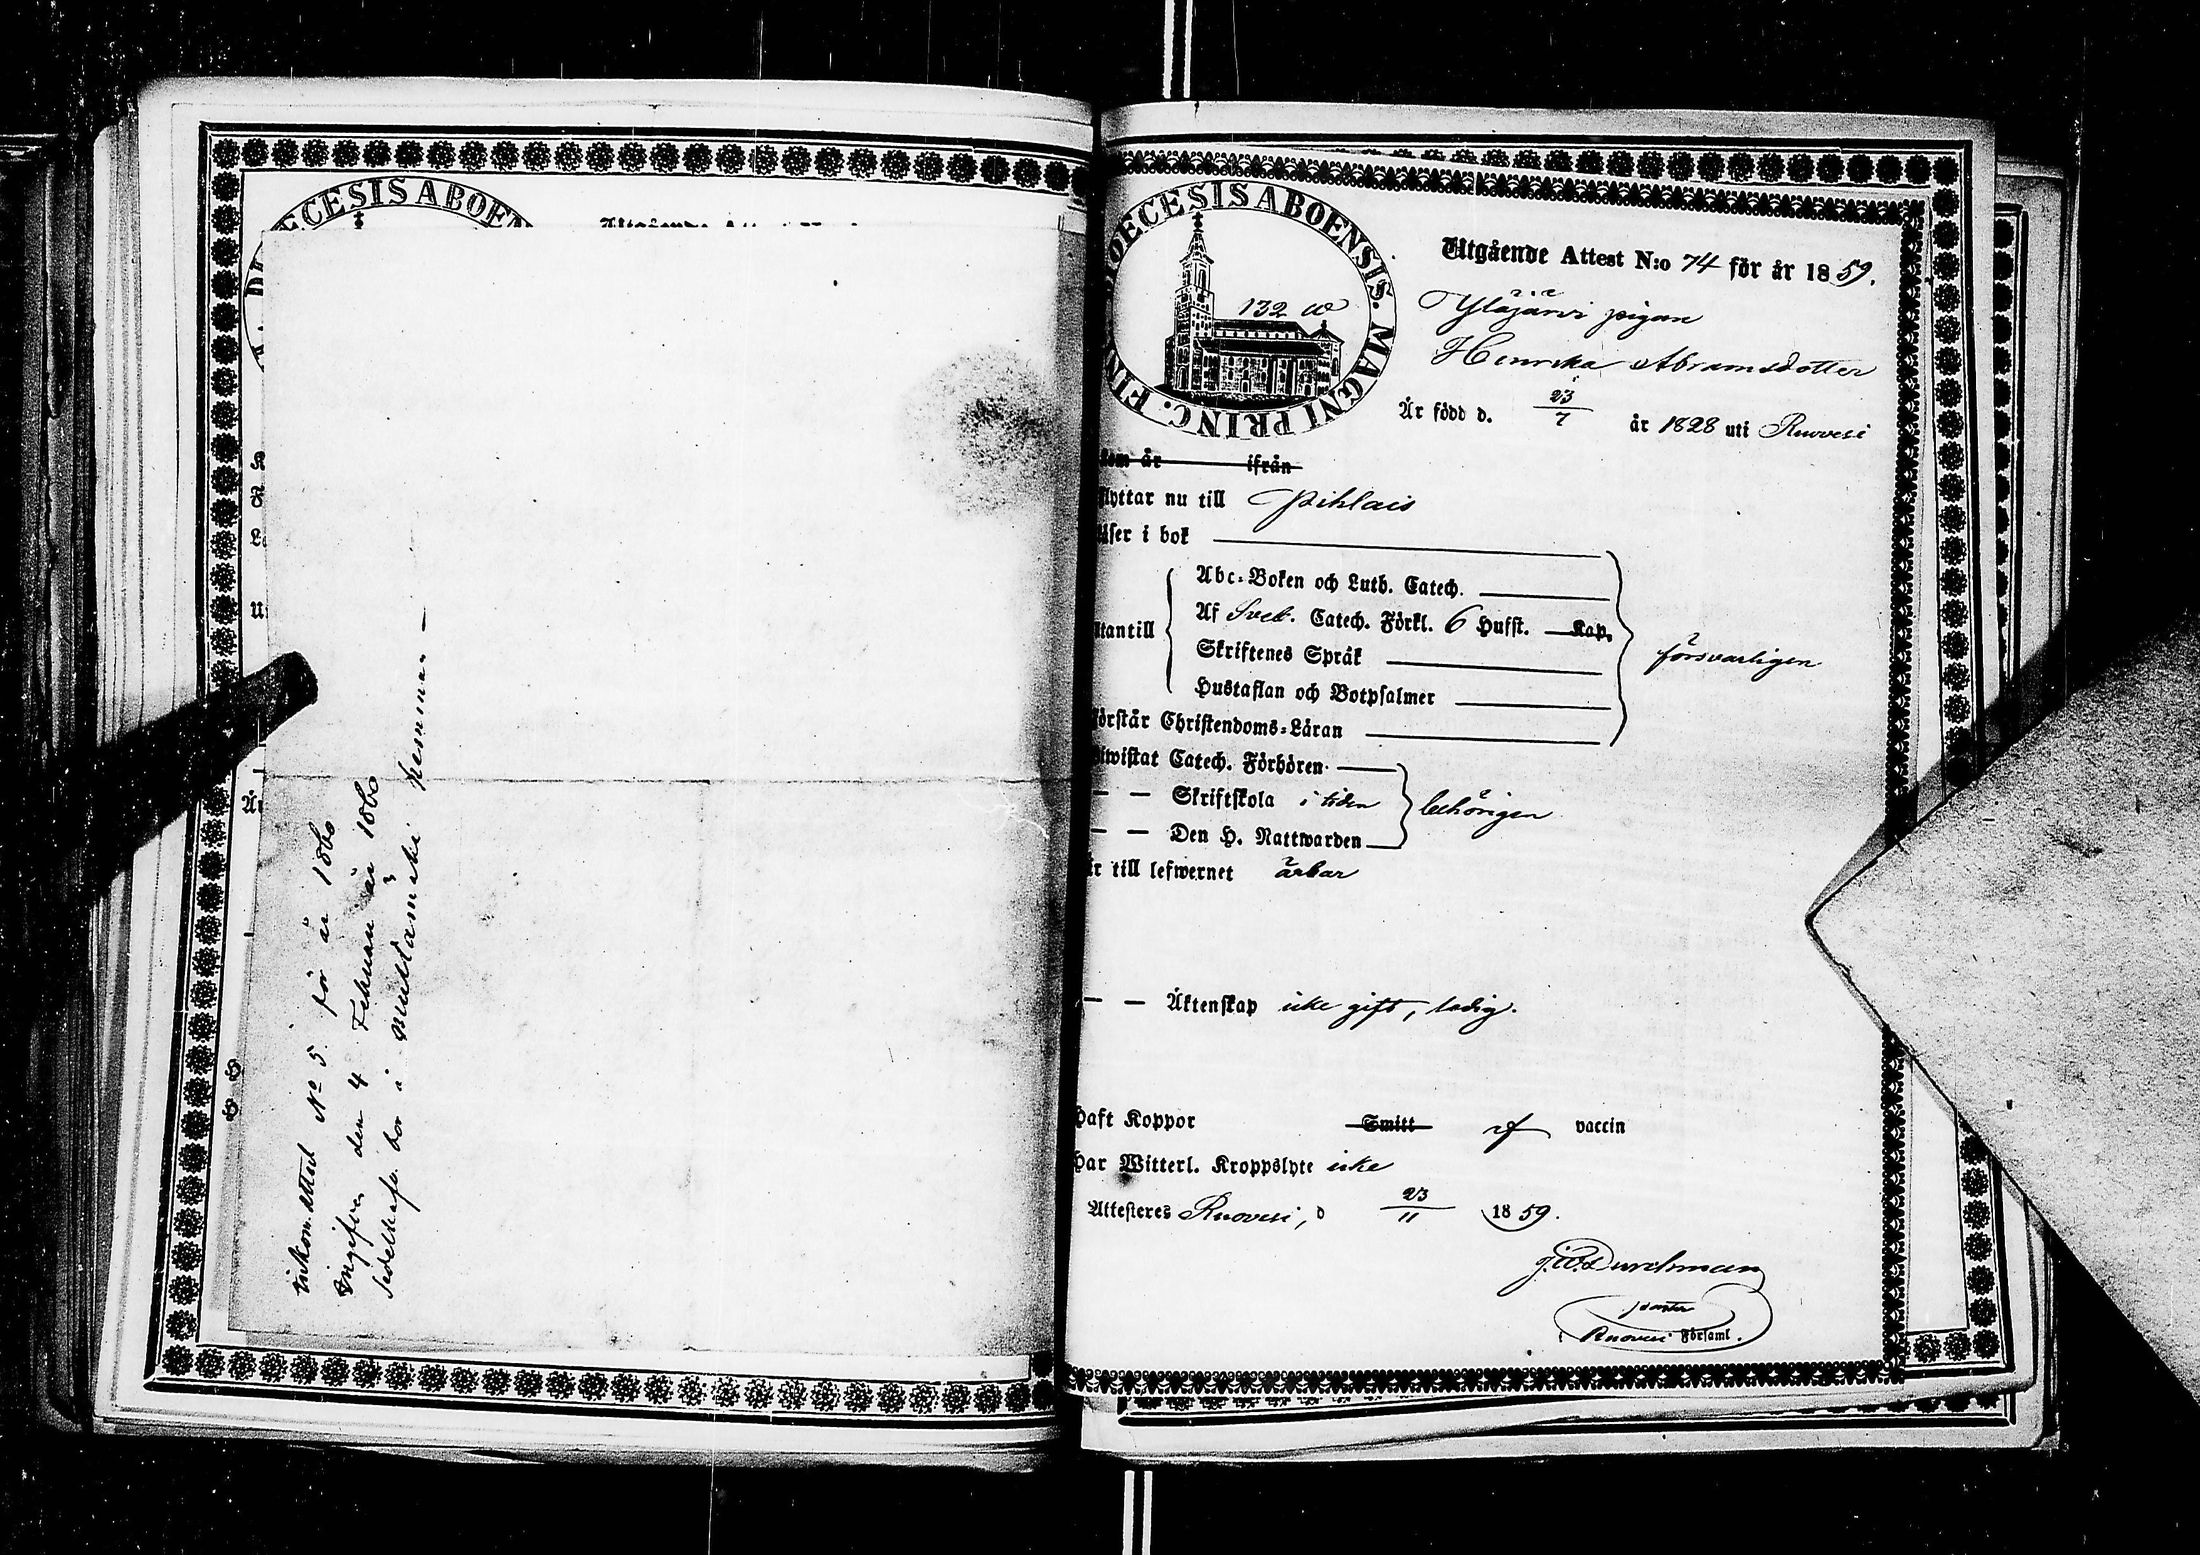 DIOECESIS ABOEN
Inkom. attest N:o 5. för år 1860
Ingifven den 4 Februari år 1860
hemman —
DIOECESIS ABOENSIS. MAGNI PRINC. FIN
132 
Utgående Attest N:o 74 för år 1859.
Yläjärvi pigan
Henrika Abramsdotter
Är född d. 23/7 år 1828 uti Ruovesi
kom år ifrån
flyttar nu till Pihlais
läser i bok
Abc-Boken och Luth. Catech.
Af Sveb. Catech. Förkl. 6 Hufst. Kap.
utantill
Skriftenes Språk
försvarligen
Hustaflan och Botpsalmer
förstår Christendoms-Läran
biwistat Catech. Förhören
— — Skriftskola i tiden
behörigen
— — Den H. Nattwarden
är till lefwernet ärbar
— — Äktenskap icke gift, ledig.
haft Koppor Smitt af vaccin
har Witterl. Kroppslyte icke
Attesteres Ruovesi, d 23/11 1859.
Durchman
Pastor
i Ruovesi Församl.